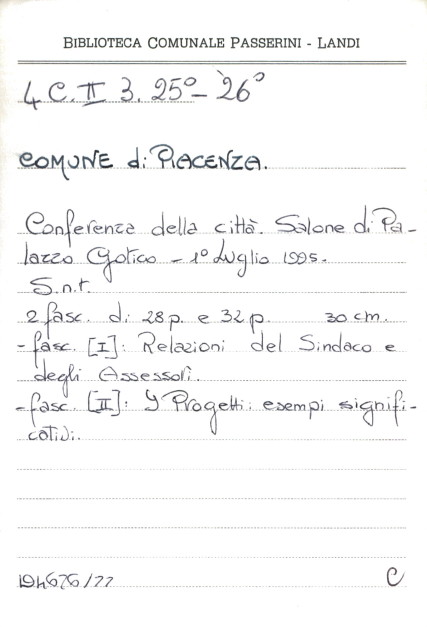 BIBLIOTECA COMUNALE PASSERINI - LANDI
4 C. II 3. 25° - 26°
COMUNE di PIACENZA.
Conferenza della città. Salone di Pa-
lazzo Gotico - 1° Luglio 1995.
S.n.t.
2 fasc. di 28 p. e 32 p. 30 cm.
- fasc. [I]: Relazioni del Sindaco e
degli Assessori.
- fasc. [II]: I Progetti: esempi signifi-
cativi.
194676/77 C